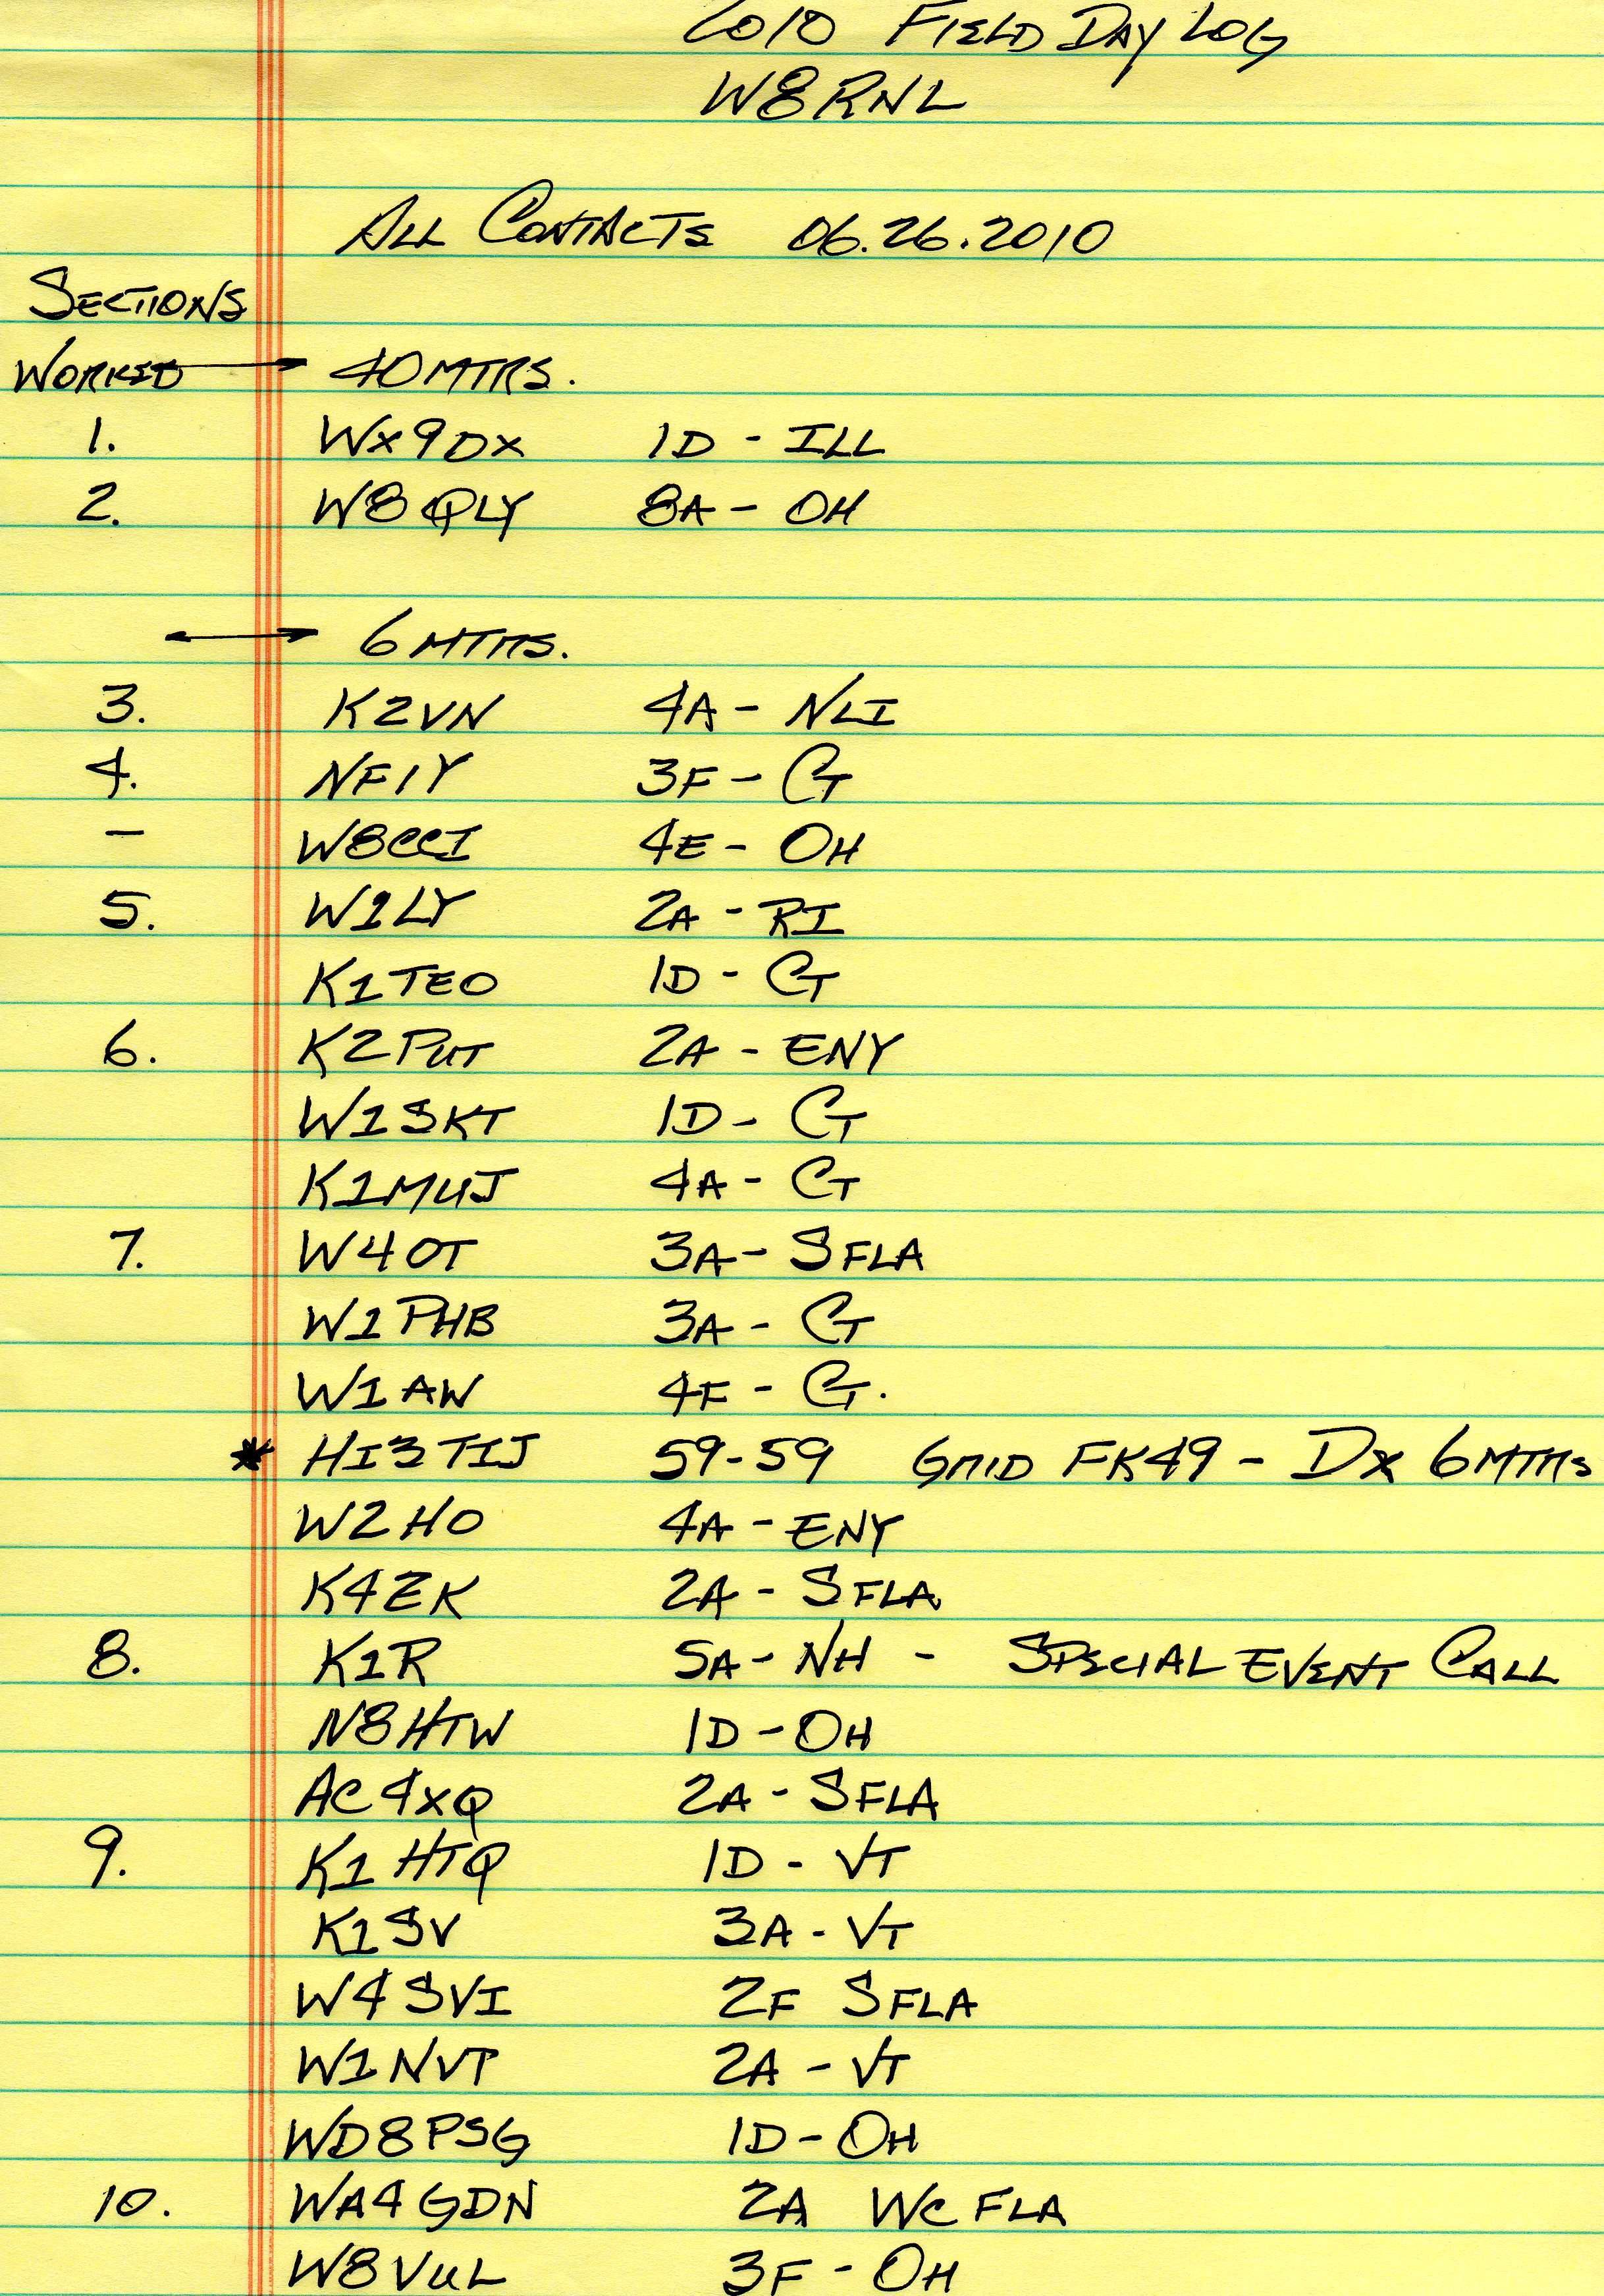 2010 FIELD DAY LOG
W8RNL
ALL CONTACTS 06.26.2010
SECTIONS
WORKED → 40 MTRS.
1. WX9DX 1D - ILL
2. W8QLY 8A - OH
↔ 6 MTRS.
3. K2VN 4A - NLI
4. NF1Y 3F - CT
- W8CCI 4E - OH
5. W1LY 2A - RI
K1TEO 1D - CT
6. K2PUT 2A - ENY
W1SKT 1D - CT
K1MUJ 4A - CT
7. W4OT 3A - SFLA
W1PHB 3A - CT
W1AW 4F - CT.
* HI3TIJ 59-59 GRID FK49 - DX 6 MTRS
W2HO 4A - ENY
K4ZK 2A - SFLA
8. K1R 5A - NH - SPECIAL EVENT CALL
N8HTW 1D - OH
AC4XQ 2A - SFLA
9. K1HTQ 1D - VT
K1SV 3A - VT
W4SVI 2F SFLA
W1NVT 2A - VT
WD8PSG 1D - OH
10. WA4GDN 2A WCFLA
W8VUL 3F - OH